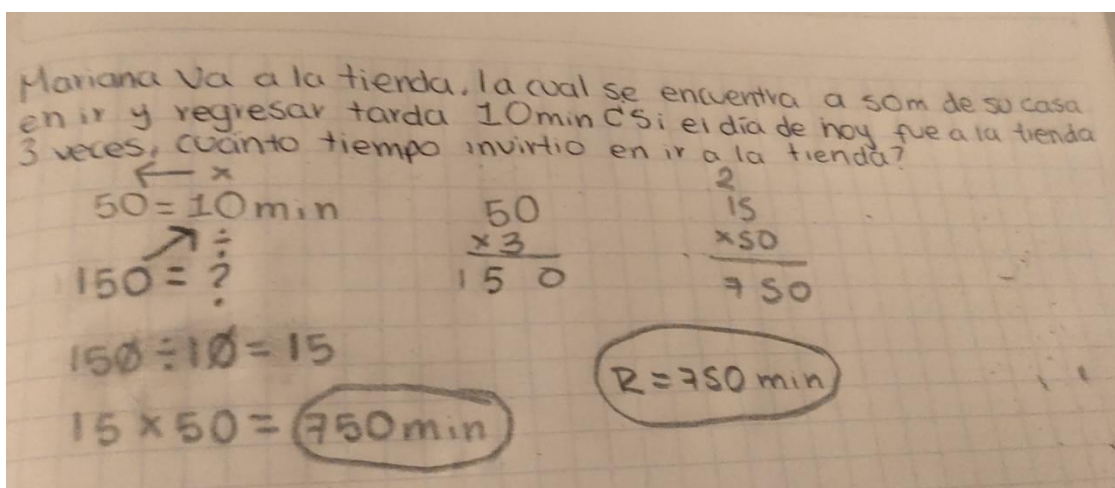 Mariana va a la tienda, la cual se encuentra a 50m de su casa
en ir y regresar tarda 10min ĆSi el día de hoy fue a la tienda
3 veces, cuánto tiempo invirtio en ir a la tienda?
← x
50 = 10 min
↗ ÷
150 = ?
150 ÷ 10 = 15
15 x 50 = 750 min
50
x 3
150
2
15
x50
750
R = 750 min